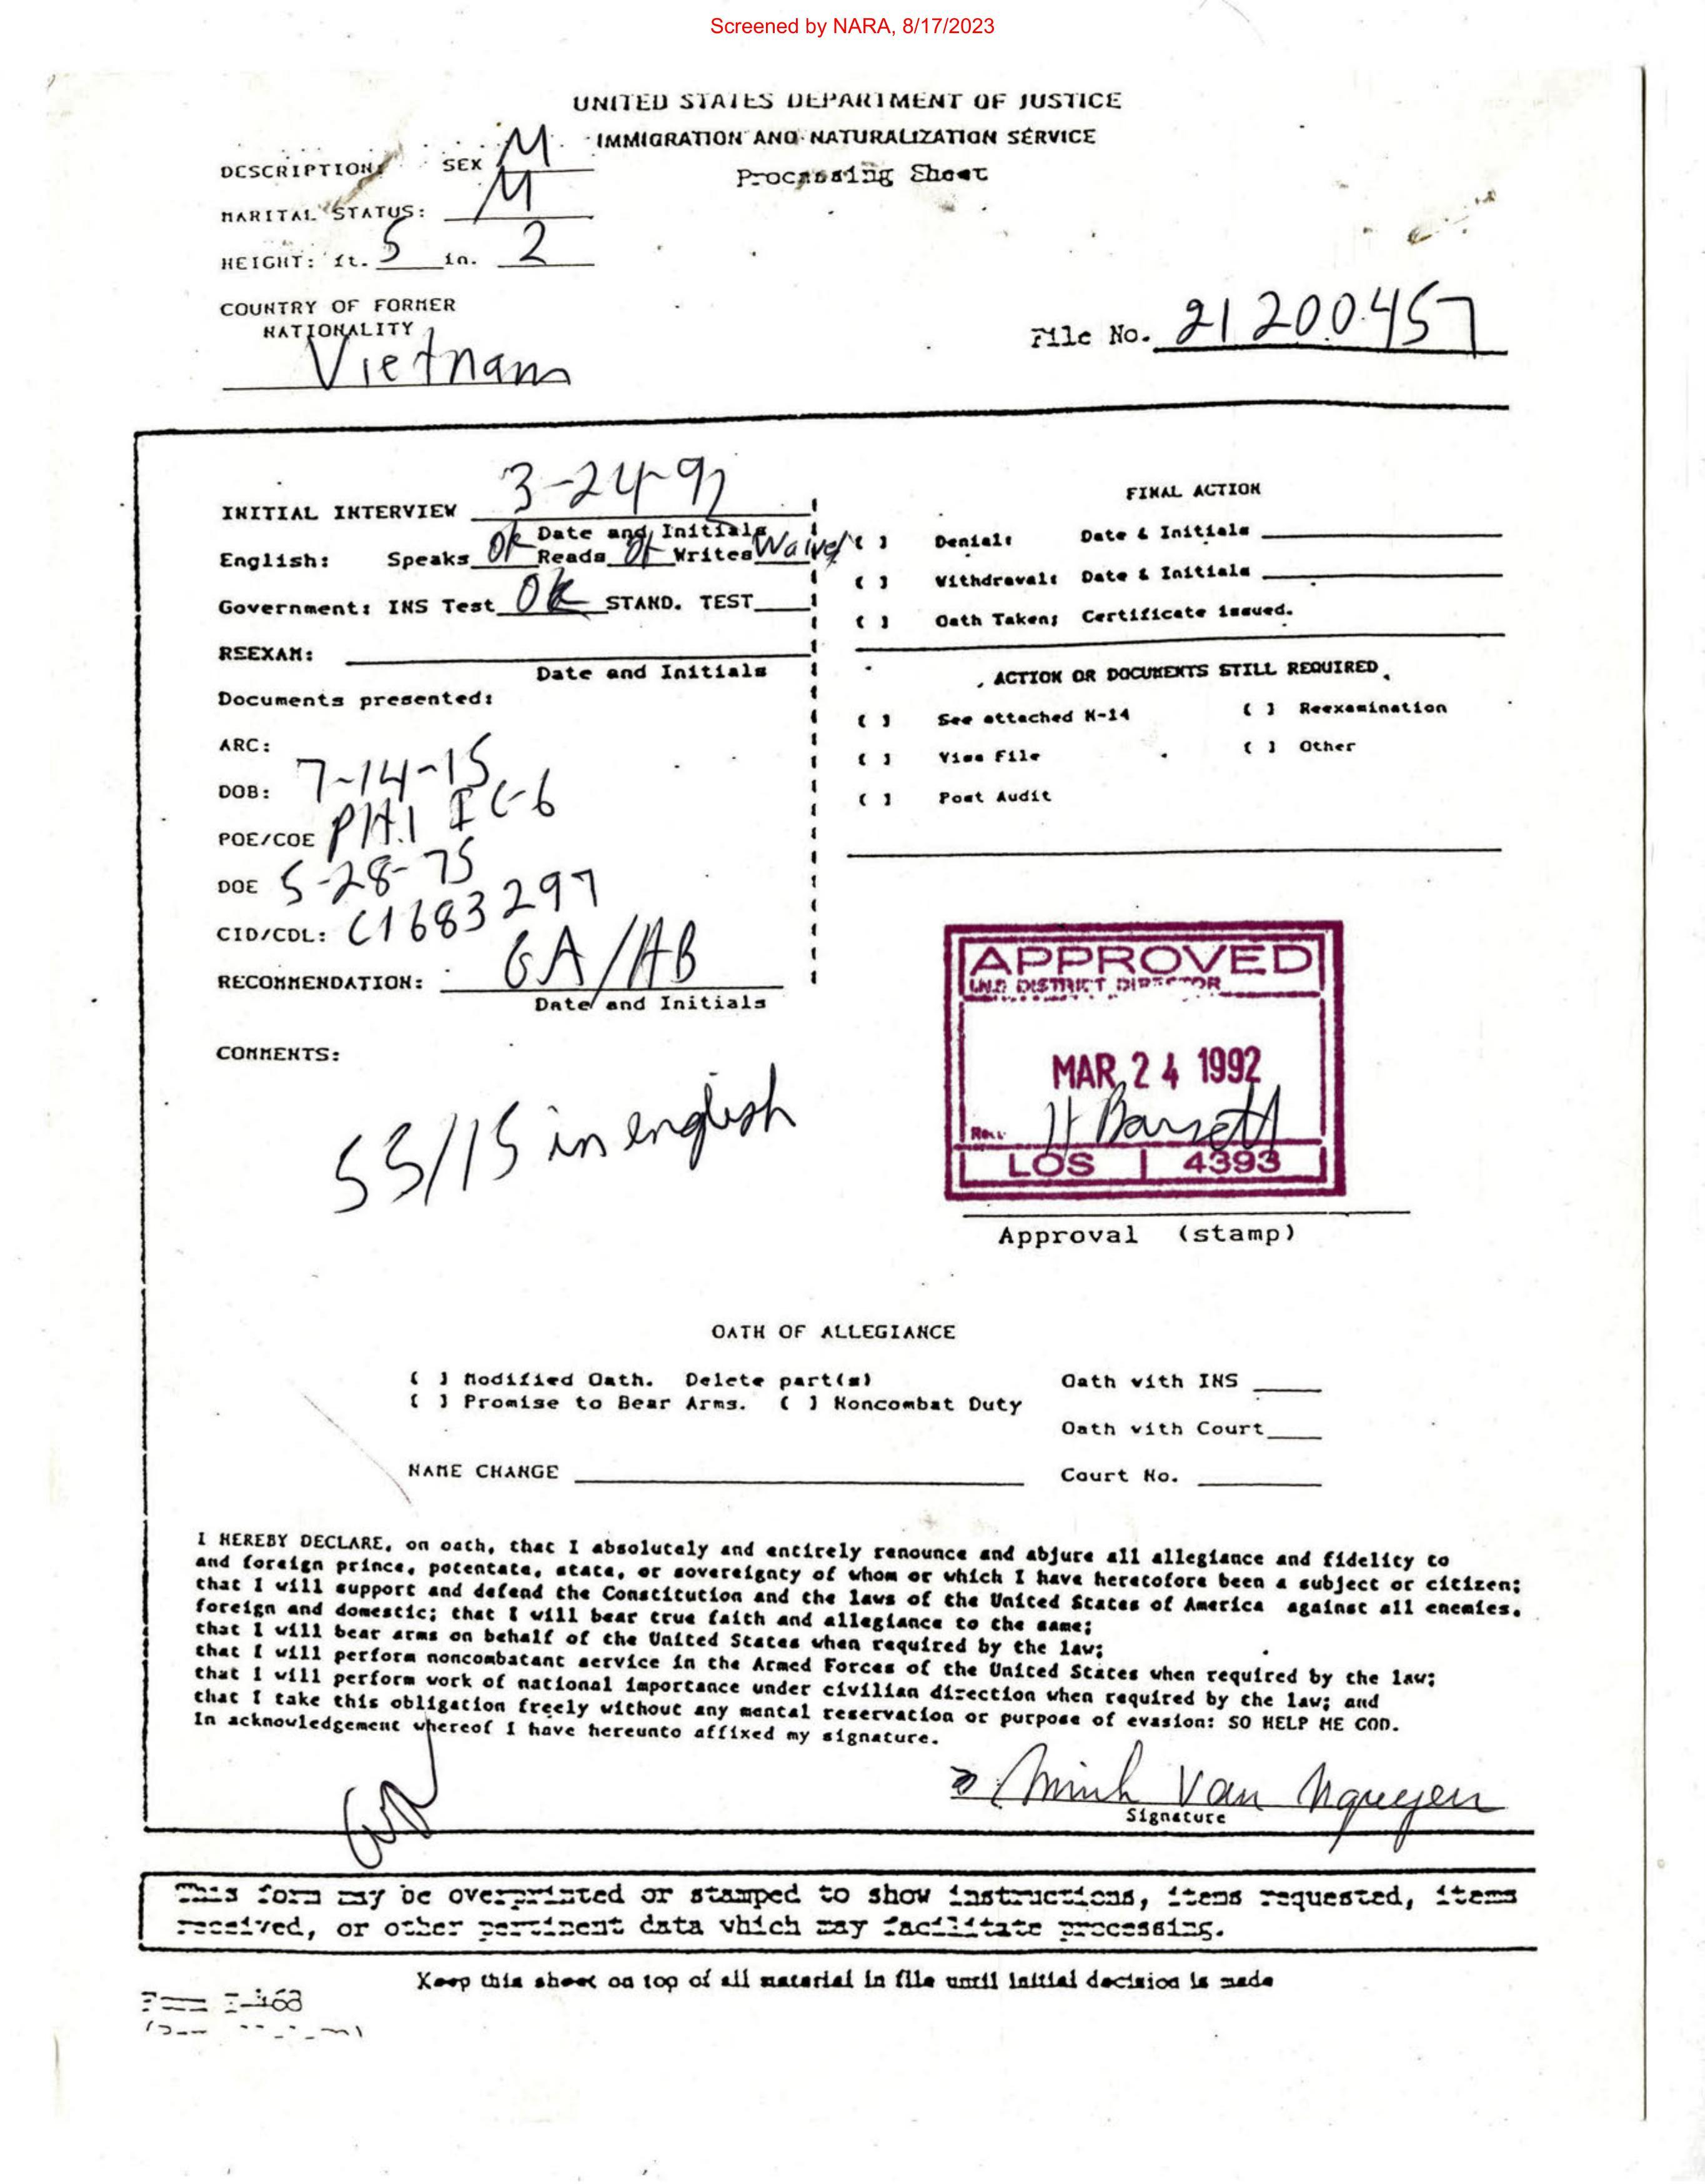 Screened by NARA, 8/17/2023
UNITED STATES DEPARTMENT OF JUSTICE
IMMIGRATION AND NATURALIZATION SERVICE
Processing Sheet
DESCRIPTION: SEX M
MARITAL STATUS: M
HEIGHT: ft. 5 in. 2
COUNTRY OF FORMER
NATIONALITY
Vietnam
File No. 21 200 457
INITIAL INTERVIEW 3-24-92
Date and Initials
English: Speaks OK Reads OK Writes Waived
Government: INS Test OK STAND. TEST
REEXAM:
Date and Initials
Documents presented:
ARC:
DOB: 7-14-15
POE/COE PHI IC-6
DOE 5-28-75
CID/CDL: C1683297
RECOMMENDATION: GA/AB
Date and Initials
COMMENTS:
55/15 in english
FINAL ACTION
( ) Denial: Date & Initials
( ) Withdrawal: Date & Initials
( ) Oath Taken; Certificate issued.
ACTION OR DOCUMENTS STILL REQUIRED
( ) See attached N-14 ( ) Reexamination
( ) Visa File ( ) Other
( ) Post Audit
APPROVED
DISTRICT DIRECTOR
MAR 24 1992
LOS 4393
Approval (stamp)
OATH OF ALLEGIANCE
( ) Modified Oath. Delete part(s) Oath with INS
( ) Promise to Bear Arms. ( ) Noncombat Duty
Oath with Court
NAME CHANGE Court No.
I HEREBY DECLARE, on oath, that I absolutely and entirely renounce and abjure all allegiance and fidelity to
and foreign prince, potentate, state, or sovereignty of whom or which I have heretofore been a subject or citizen;
that I will support and defend the Constitution and the laws of the United States of America against all enemies,
foreign and domestic; that I will bear true faith and allegiance to the same;
that I will bear arms on behalf of the United States when required by the law;
that I will perform noncombatant service in the Armed Forces of the United States when required by the law;
that I will perform work of national importance under civilian direction when required by the law; and
that I take this obligation freely without any mental reservation or purpose of evasion: SO HELP ME GOD.
In acknowledgement whereof I have hereunto affixed my signature.
Minh Van Nguyen
Signature
This form may be overprinted or stamped to show instructions, items requested, items
received, or other pertinent data which may facilitate processing.
Keep this sheet on top of all material in file until initial decision is made